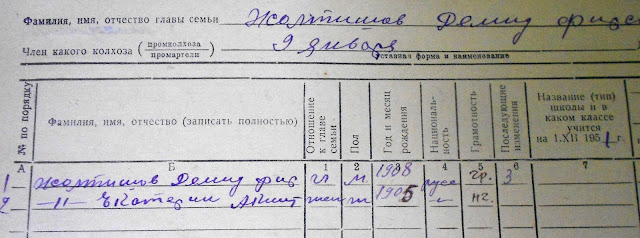 Фамилия, имя, отчество главы семьи Желтишов Демид Фирс
Член какого колхоза (промколхоза промартели) 9 января
уставная форма и наименование
№ по порядку Фамилия, имя, отчество (записать полностью) Отношение к главе семьи Пол Год и месяц рождения Националь-ность Грамотность Последующие изменения Название (тип) школы и в каком классе учится на 1.XII 1951 г.
А Б 1 2 3 4 5 6 7
1 Желтишов Демид Фирс гл м 1908 русс гр. 3
2 —"— Екатерин Акинт жен ж 1905 —"— нг.